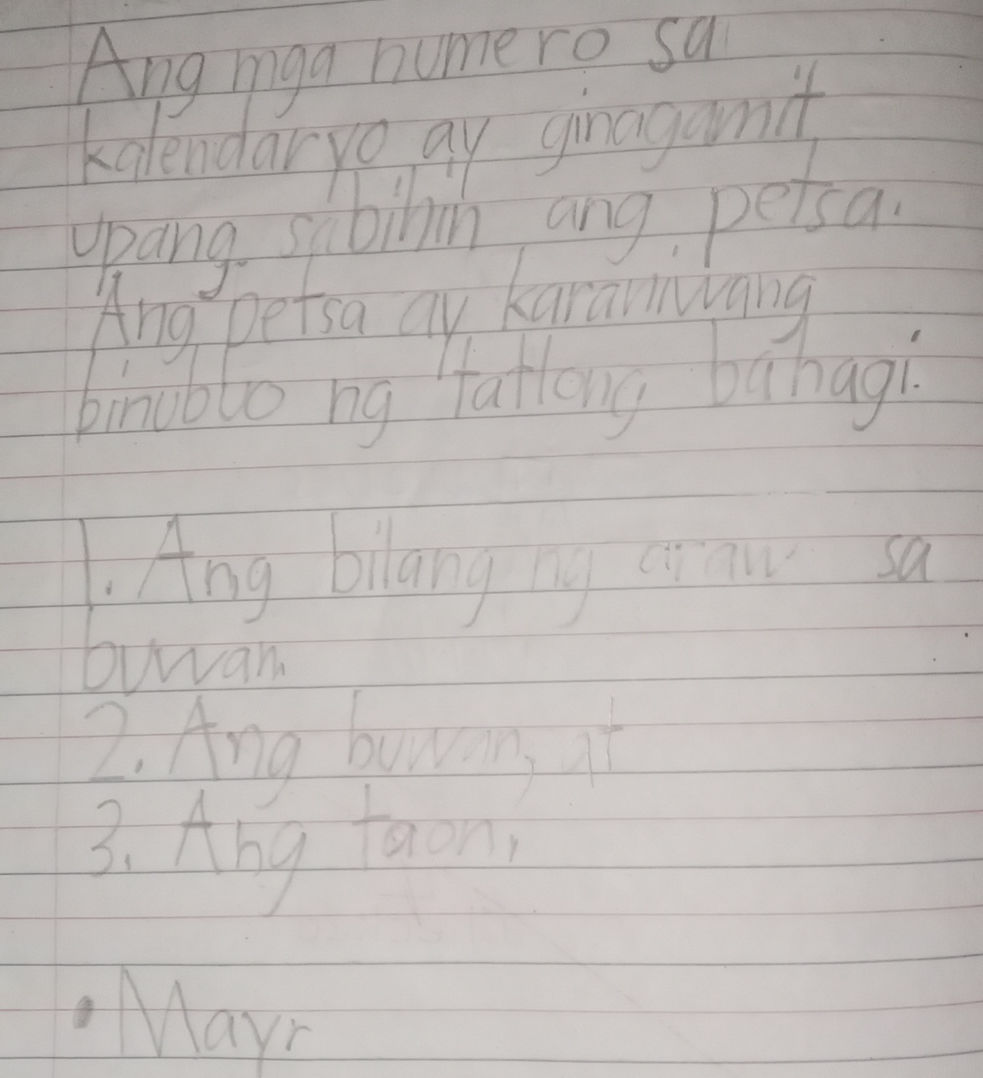 Ang mga numero sa
kalendaryo ay ginagamit
upang sabihin ang petsa.
Ang petsa ay karaniwang
binubuo ng tatlong bahagi.
1. Ang bilang ng araw sa
buwan
2. Ang buwan, at
3. Ang taon,
• Mayr